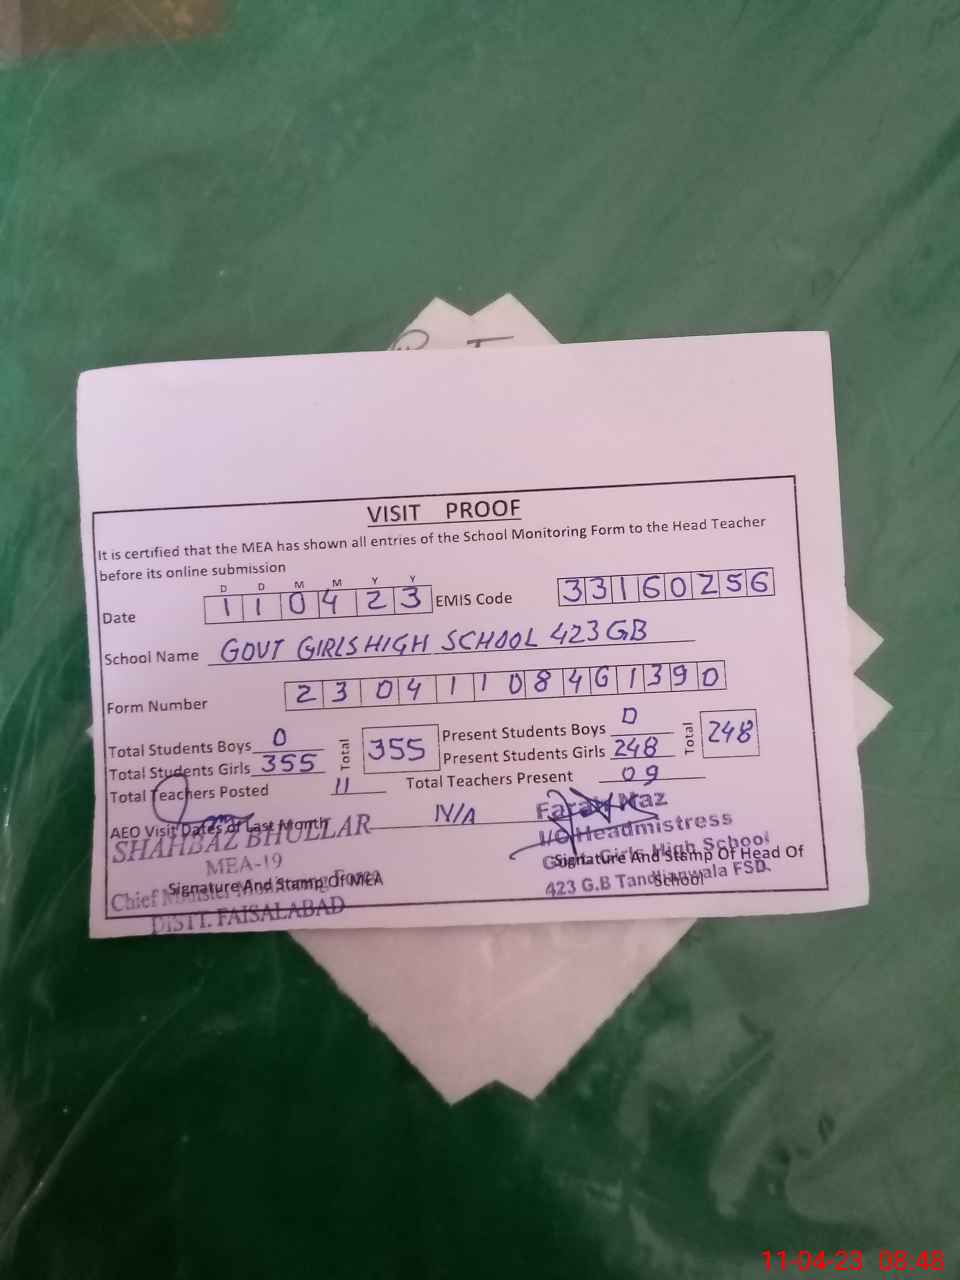 VISIT PROOF
It is certified that the MEA has shown all entries of the School Monitoring Form to the Head Teacher
before its online submission
D D M M Y Y
Date 1 1 0 4 2 3 EMIS Code 3 3 1 6 0 2 5 6
School Name GOVT GIRLS HIGH SCHOOL 423 GB
Form Number 2 3 0 4 1 1 0 8 4 6 1 3 9 0
Total Students Boys 0 Total 355 Present Students Boys 0 Total 248
Total Students Girls 355 Present Students Girls 248
Total Teachers Posted 11 Total Teachers Present 09
AEO Visit Dates of Last Month N/A
SHAHBAZ BHULLAR
MEA-19
Chief Minister Monitoring Force
DISTT. FAISALABAD
Signature And Stamp Of MEA
Farah Naz
I/C Headmistress
Govt. Girls High School
423 G.B Tandlianwala FSD.
Signature And Stamp Of Head Of
School
11-04-23 08:48